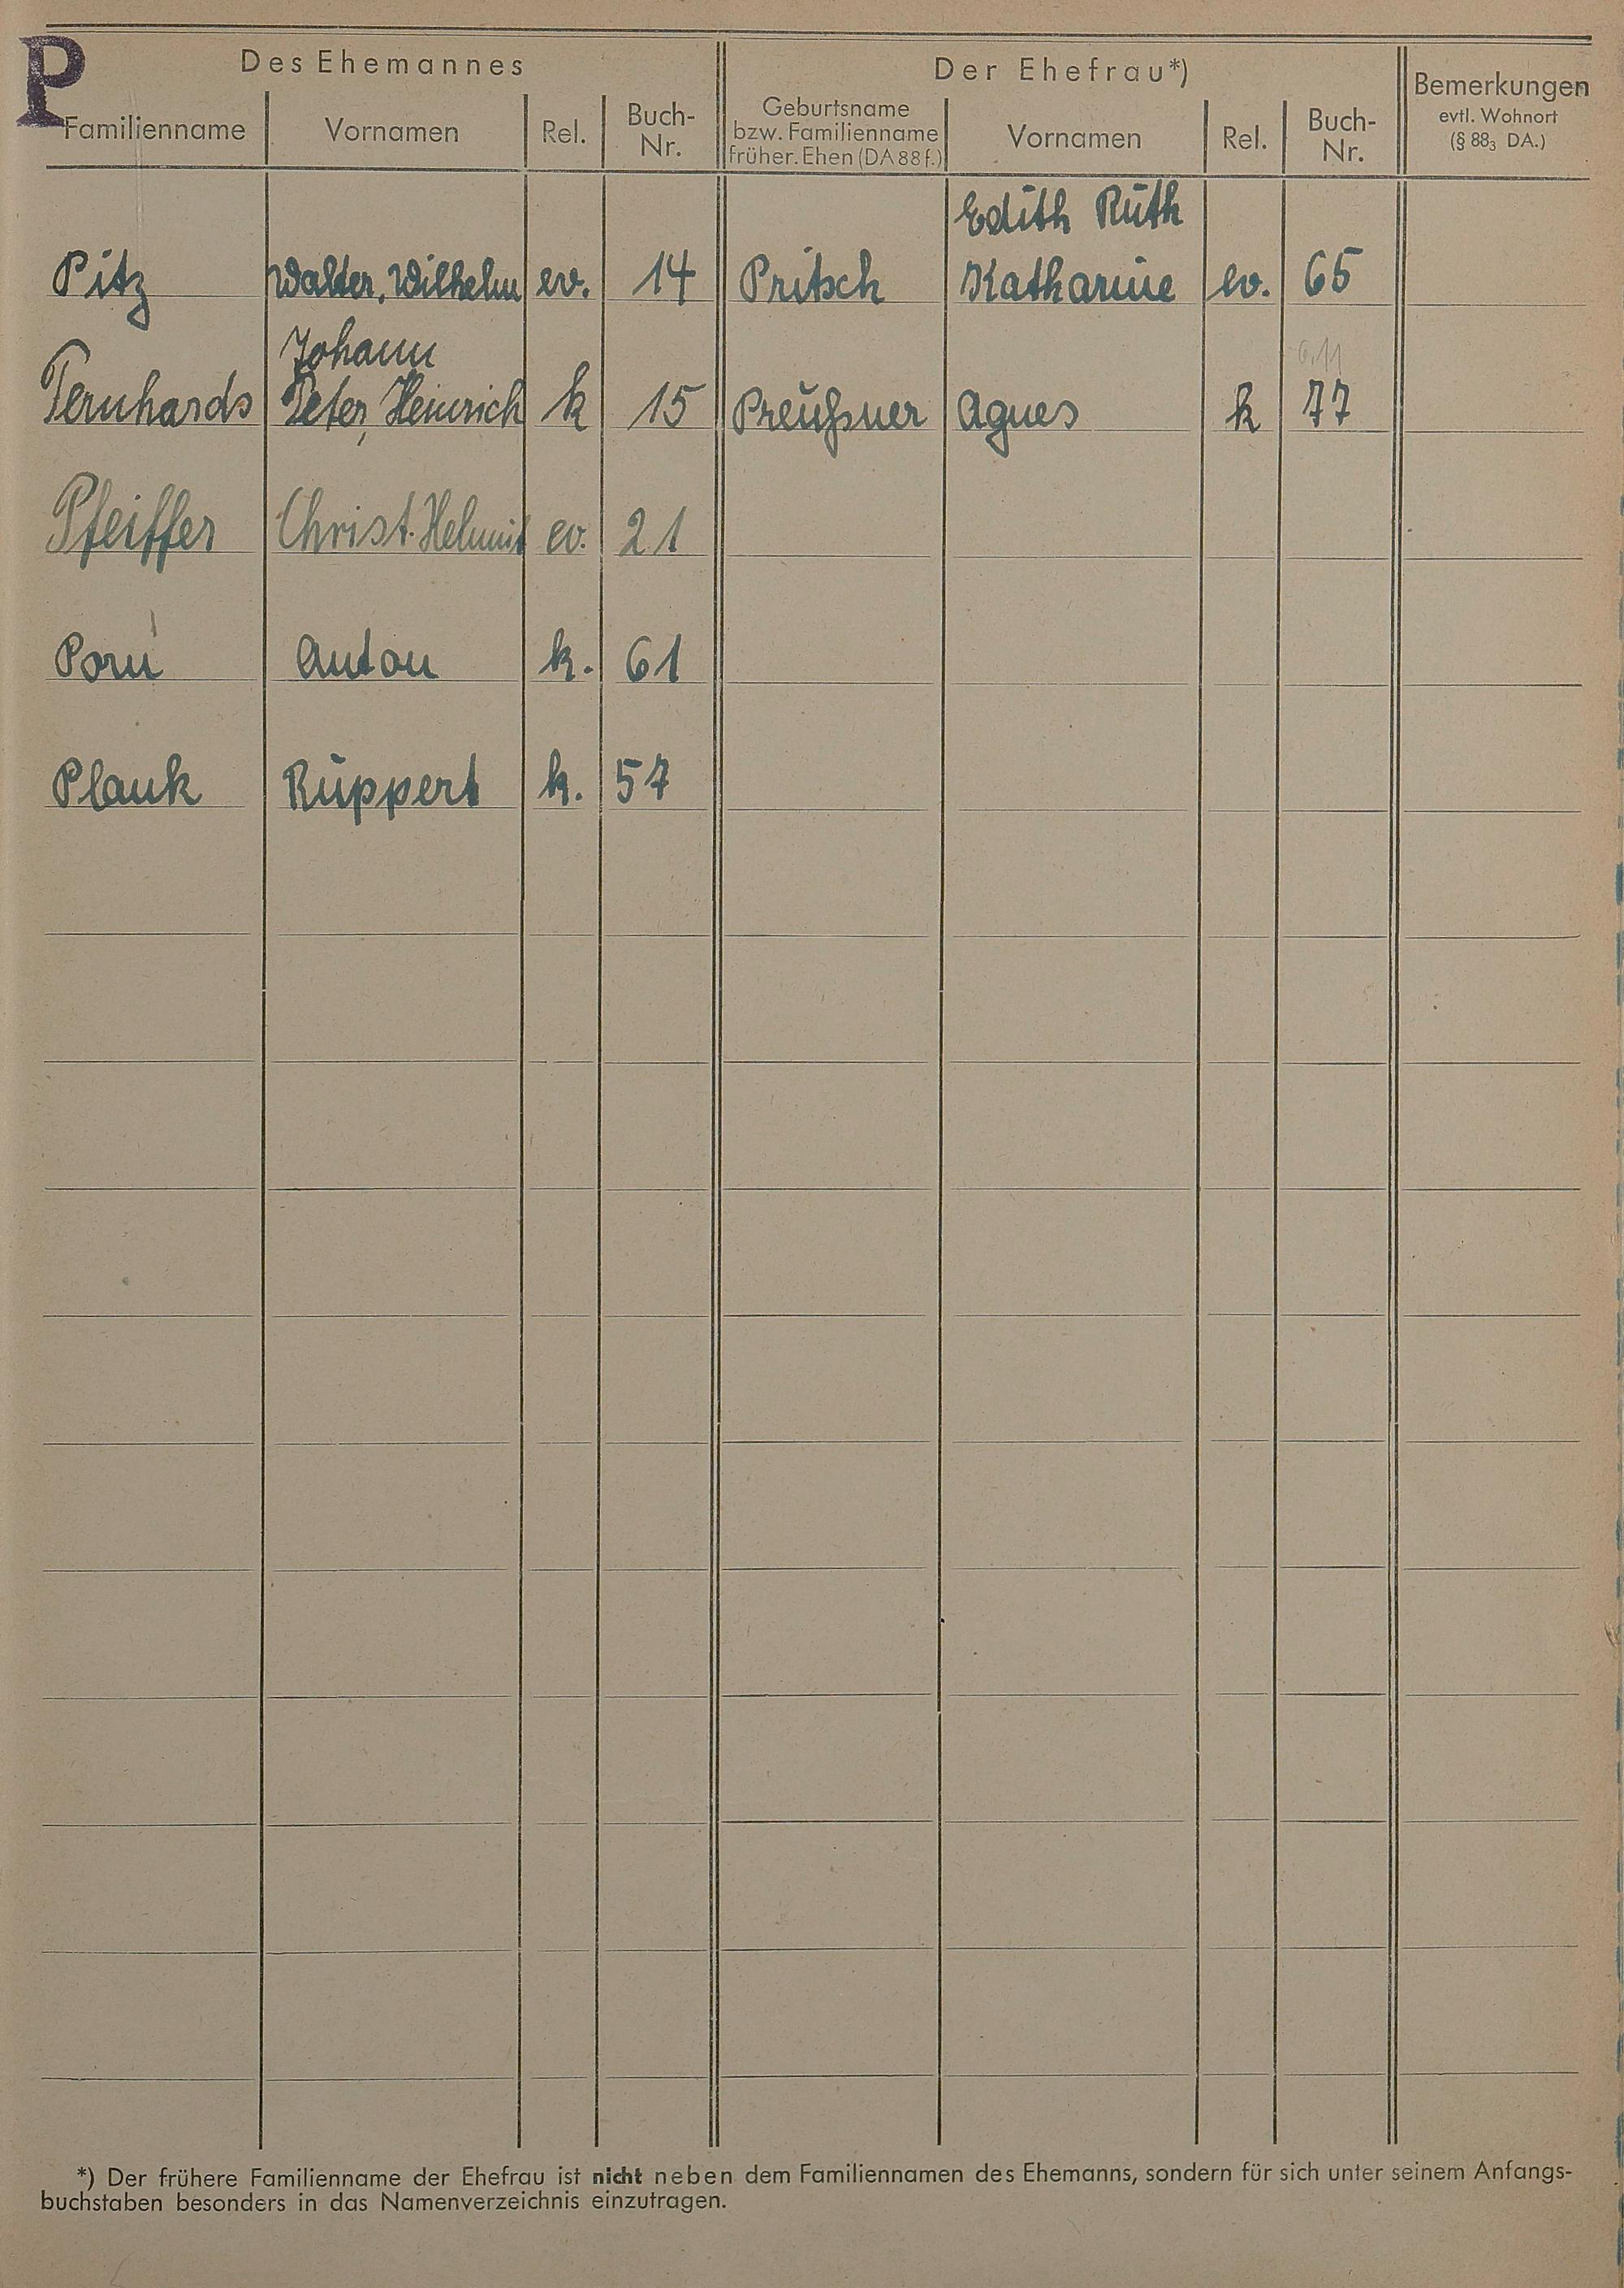 P
Des Ehemannes
Der Ehefrau*)
Familienname
Vornamen
Rel.
Buch-
Nr.
Geburtsname
bzw. Familienname
früher. Ehen (DA 88 f.)
Vornamen
Rel.
Buch-
Nr.
Bemerkungen
evtl. Wohnort
(§ 88₃ DA.)
Edith Ruth
Pitz Walter, Wilhelm ev. 14 Pritsch Katharine ev. 65
Johann
6.11
Pernhards Peter, Heinrich k 15 Preußner Agnes k 77
Pfeiffer Christ. Helmut ev. 21
Anton k. 61
Plank Ruppert k. 57
*) Der frühere Familienname der Ehefrau ist nicht neben dem Familiennamen des Ehemanns, sondern für sich unter seinem Anfangs-
buchstaben besonders in das Namenverzeichnis einzutragen.